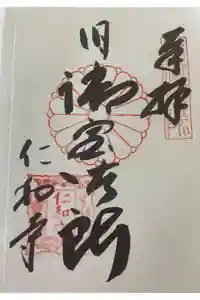 奉拝
旧御室御所
仁和寺